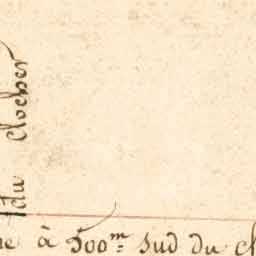 du clocher
à 500m sud du